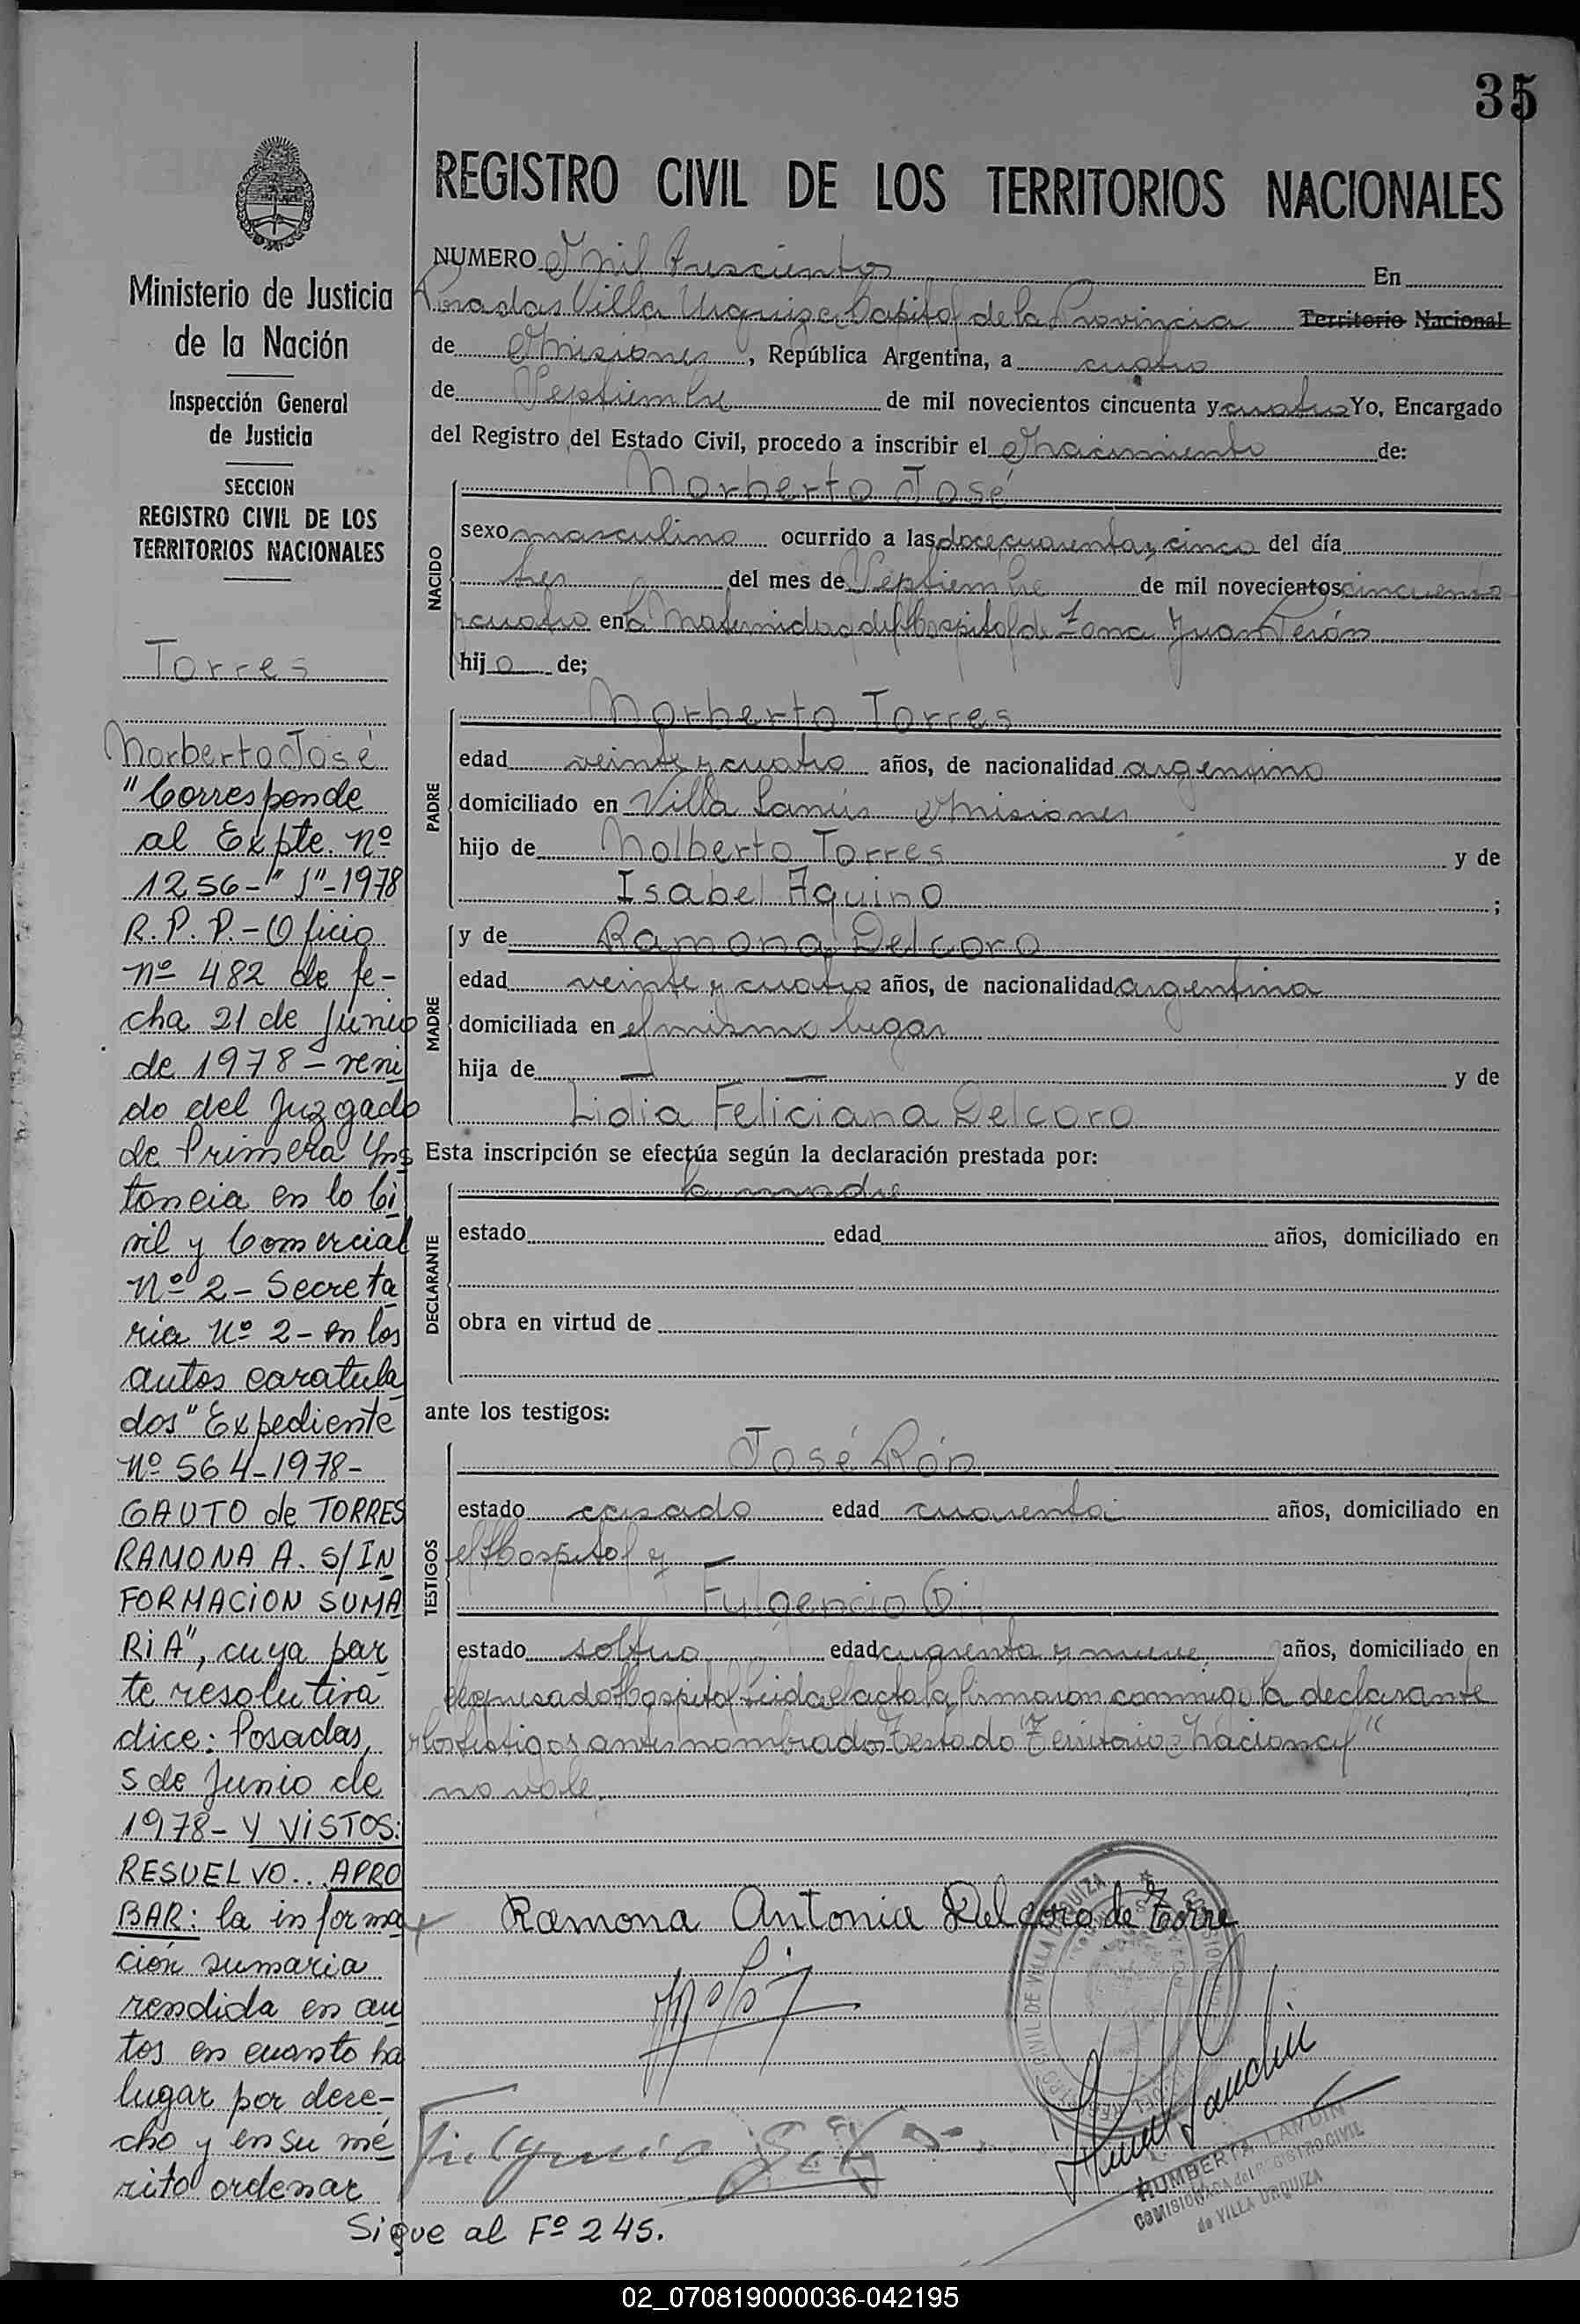 35
REGISTRO CIVIL DE LOS TERRITORIOS NACIONALES
Ministerio de Justicia
de la Nación
Inspección General
de Justicia
SECCION
REGISTRO CIVIL DE LOS
TERRITORIOS NACIONALES
Torres
Norberto José
"Corresponde
al Expte. Nº
1256-"J"-1978
R.P.P.- Oficio
Nº 482 de fe-
cha 21 de Junio
de 1978 - veni
do del Juzgado
de Primera Ins
tancia en lo Ci
vil y Comercial
Nº 2 - Secreta
ria Nº 2 - en los
autos caratula
dos "Expediente
Nº 564-1978-
GAUTO de TORRES
RAMONA A. S/IN
FORMACION SUMA
RIA", cuya par
te resolutiva
dice: Posadas,
5 de Junio de
1978 - Y VISTOS:
RESUELVO... APRO
BAR: la informa
ción sumaria
rendida en au
tos en cuanto ha
lugar por dere-
cho y en su mé
rito ordenar
Sigue al Fº 245.
NUMERO Mil trescientos En
Posadas Villa Urquiza Capital de la Provincia Territorio Nacional
de Misiones, República Argentina, a cuatro
de Septiembre de mil novecientos cincuenta y cuatro Yo, Encargado
del Registro del Estado Civil, procedo a inscribir el Nacimiento de:
NACIDO
Norberto José
sexo masculino ocurrido a las doce cuarenta y cinco del día
tres del mes de Septiembre de mil novecientos cincuenta
y cuatro en la Maternidad del Hospital de Zona Juan Perón
hijo de;
PADRE
Norberto Torres
edad veinte y cuatro años, de nacionalidad argentino
domiciliado en Villa Lanús Misiones
hijo de Nolberto Torres y de
Isabel Aquino ;
MADRE
y de Ramona Delcoro
edad veinte y cuatro años, de nacionalidad argentina
domiciliada en el mismo lugar
hija de — — y de
Lidia Feliciana Delcoro
Esta inscripción se efectúa según la declaración prestada por:
DECLARANTE
la madre
estado edad años, domiciliado en
obra en virtud de
ante los testigos:
TESTIGOS
José Rón
estado casado edad cuarenta años, domiciliado en
el Hospital y —
Fulgencio Gil
estado soltero edad cuarenta y nueve años, domiciliado en
el expresado Hospital Leida el acta la firmaron conmigo la declarante
y los testigos antes nombrados Testado "Territorio Nacional"
no vale.
Ramona Antonia Delcoro de Torre
HUMBERTA LANDIN
COMISIONADA del REGISTRO CIVIL
de VILLA URQUIZA
02_070819000036-042195